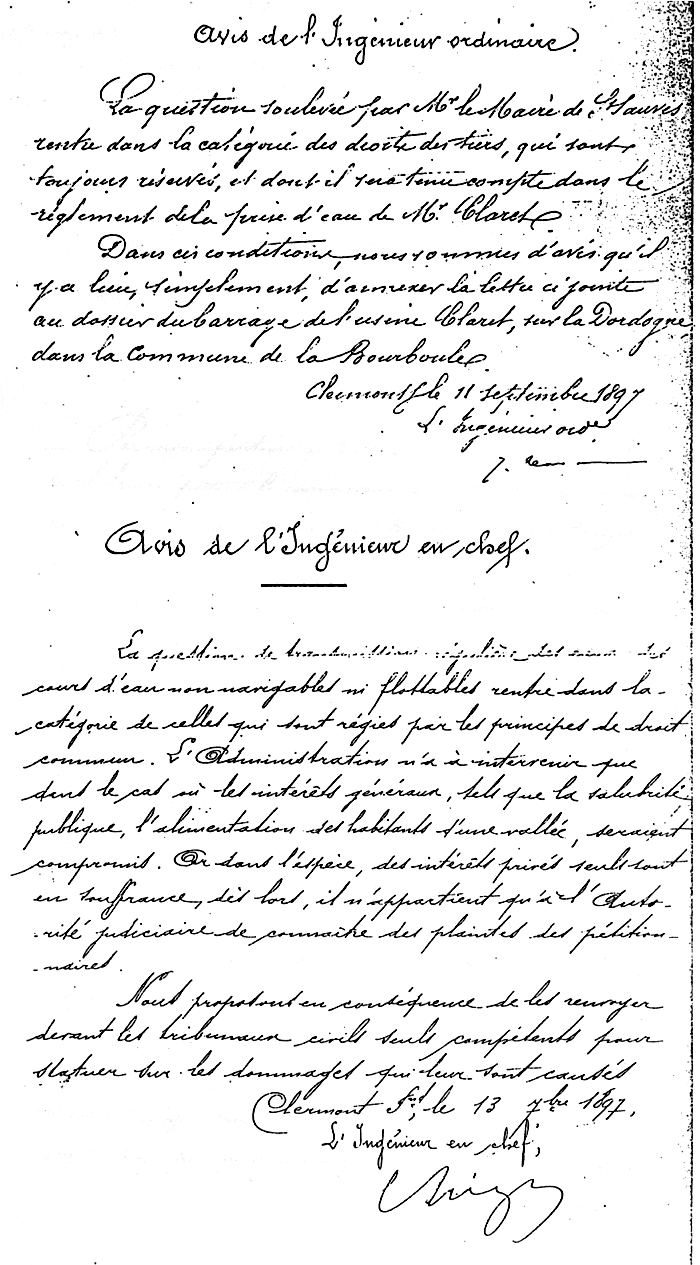 Avis de l'Ingénieur ordinaire.
La question soulevée par Mr le Maire de St Sauves
rentre dans la catégorie des droits des tiers, qui sont
toujours réservés, et dont il sera tenu compte dans le
règlement de la prise d'eau de Mr Claret.
Dans ces conditions, nous sommes d'avis qu'il
y a lieu, simplement, d'annexer la lettre ci jointe
au dossier du barrage de l'usine Claret, sur la Dordogne,
dans la commune de la Bourboule.
Clermont, le 11 septembre 1897
L'Ingénieur ordre
Avis de l'Ingénieur en chef.
La question de transmission régulière des eaux des
cours d'eau non navigables ni flottables rentre dans la
catégorie de celles qui sont régies par les principes de droit
commun. L'Administration n'a à intervenir que
dans le cas où les intérêts généraux, tels que la salubrité
publique, l'alimentation des habitants d'une vallée, seraient
compromis. Or dans l'espèce, des intérêts privés seuls sont
en souffrance, dès lors, il n'appartient qu'à l'Auto-
-rité judiciaire de connaître des plaintes des pétition-
-naires.
Nous proposons en conséquence de les renvoyer
devant les tribunaux civils seuls compétents pour
statuer sur les dommages qui leur sont causés
Clermont Fd, le 13 7bre 1897.
L'Ingénieur en chef,